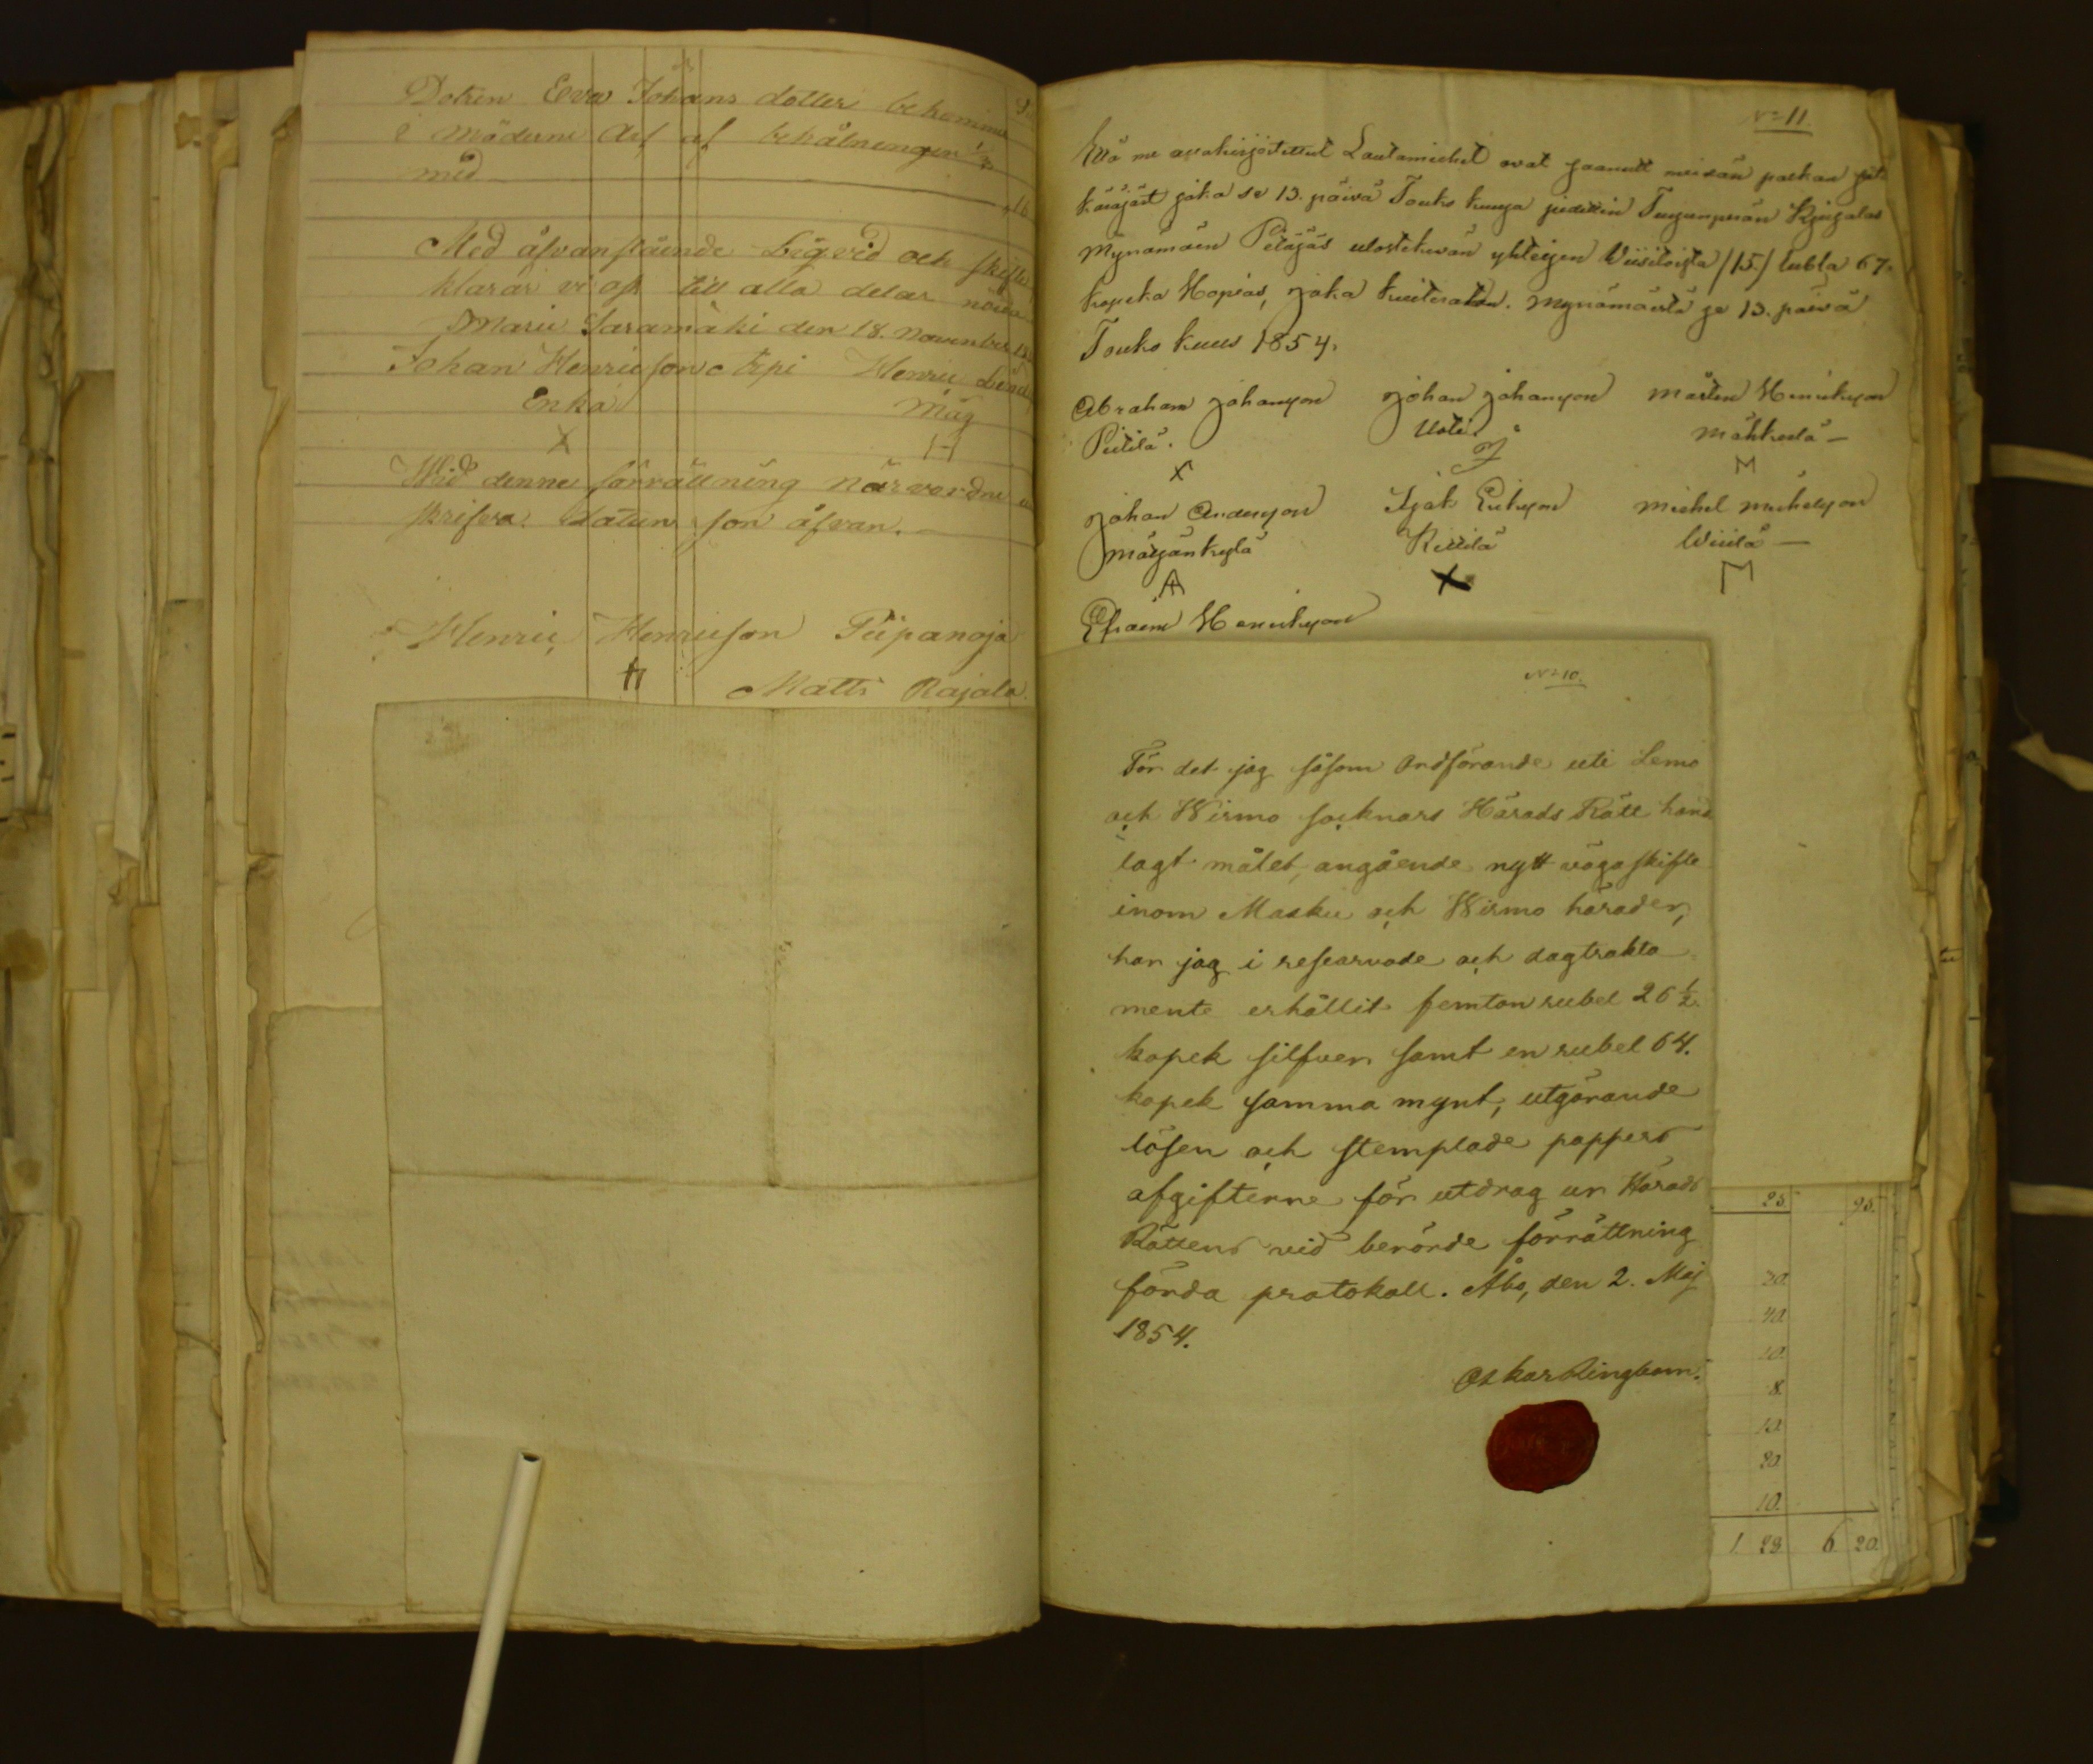 Dotren Eva Johans dotter bekommer
i möderne Arf af behålnengen 1/2
med
Med åfvanstäende Lägvid och skifte
klarar vi oss till alla delar nöida
Marie Saramäki den 18. November
Johan Henricson Erpi Henric
Enka Måg
X H
Wid denne förrättning närvordne
skrifvra datun son åfvan.
Henric Henricson Piipanoja
H Matti Rajala.
No 11.
Että me allakirjoitettut Lautamiehet ovat saanutt meidän palkan
käräjäst joka se 13. päivä Touko kuusa pidettin
Mynämäen Pitäjäs ulostekevän yhteisen Viisitoista /15./ rubla 67.
kopeka Hopias, joka kuiteratan. Mynämäeltä se 13. päivä
Touko kuus 1854.
Abraham Johansson Johan Johansson Mårten Henriksson
Pietilä. Uoti. Mähkälä
X J M
Johan Andersson Isak Eriksson Michel Michelsson
Märjänkylä Kiiilä Wiiilä
A X M
Efraim Henriksson
No 10.
För det jag såsom Ordförande uti Lemo
och Wirmo socknars Härads Rätt hand
lagt målet, angående nytt vägaskifte
inom Masku och Wirmo härader,
har jag i researvode och dagtrakta
mente erhållit femton rubel 26 1/2
kopek silfver samt en rubel 64.
kopek samma mynt, utgörande
lösen och stemplade pappers
afgifterne för utdrag ur Härads
Rättens vid berörde förrättning
förda protokoll. Åbo, den 2. Maj
1854.
Oskar Ringbom.
25. 95.
20.
40.
10.
8.
10.
20.
10.
1. 29 6. 20.